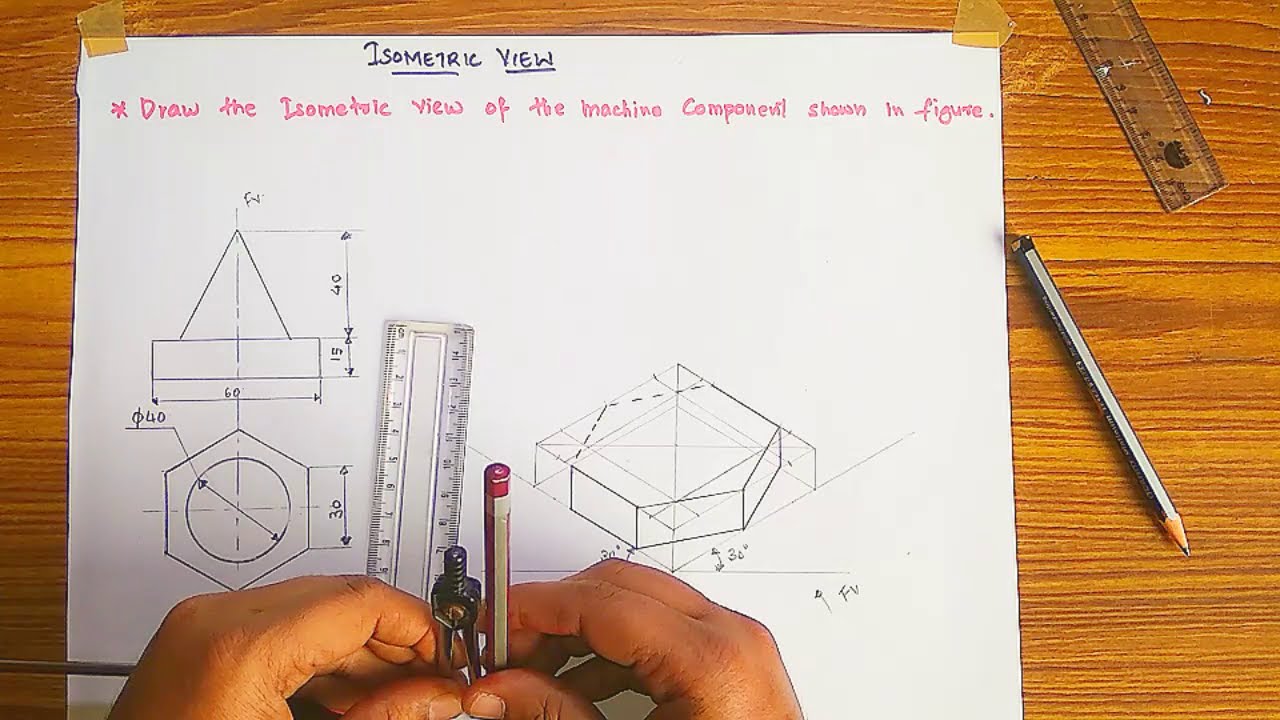 ISOMETRIC VIEW
* Draw the Isometric view of the machine Component shown in figure.
FV
40
15
60
ф40
30
30°
30°
FV